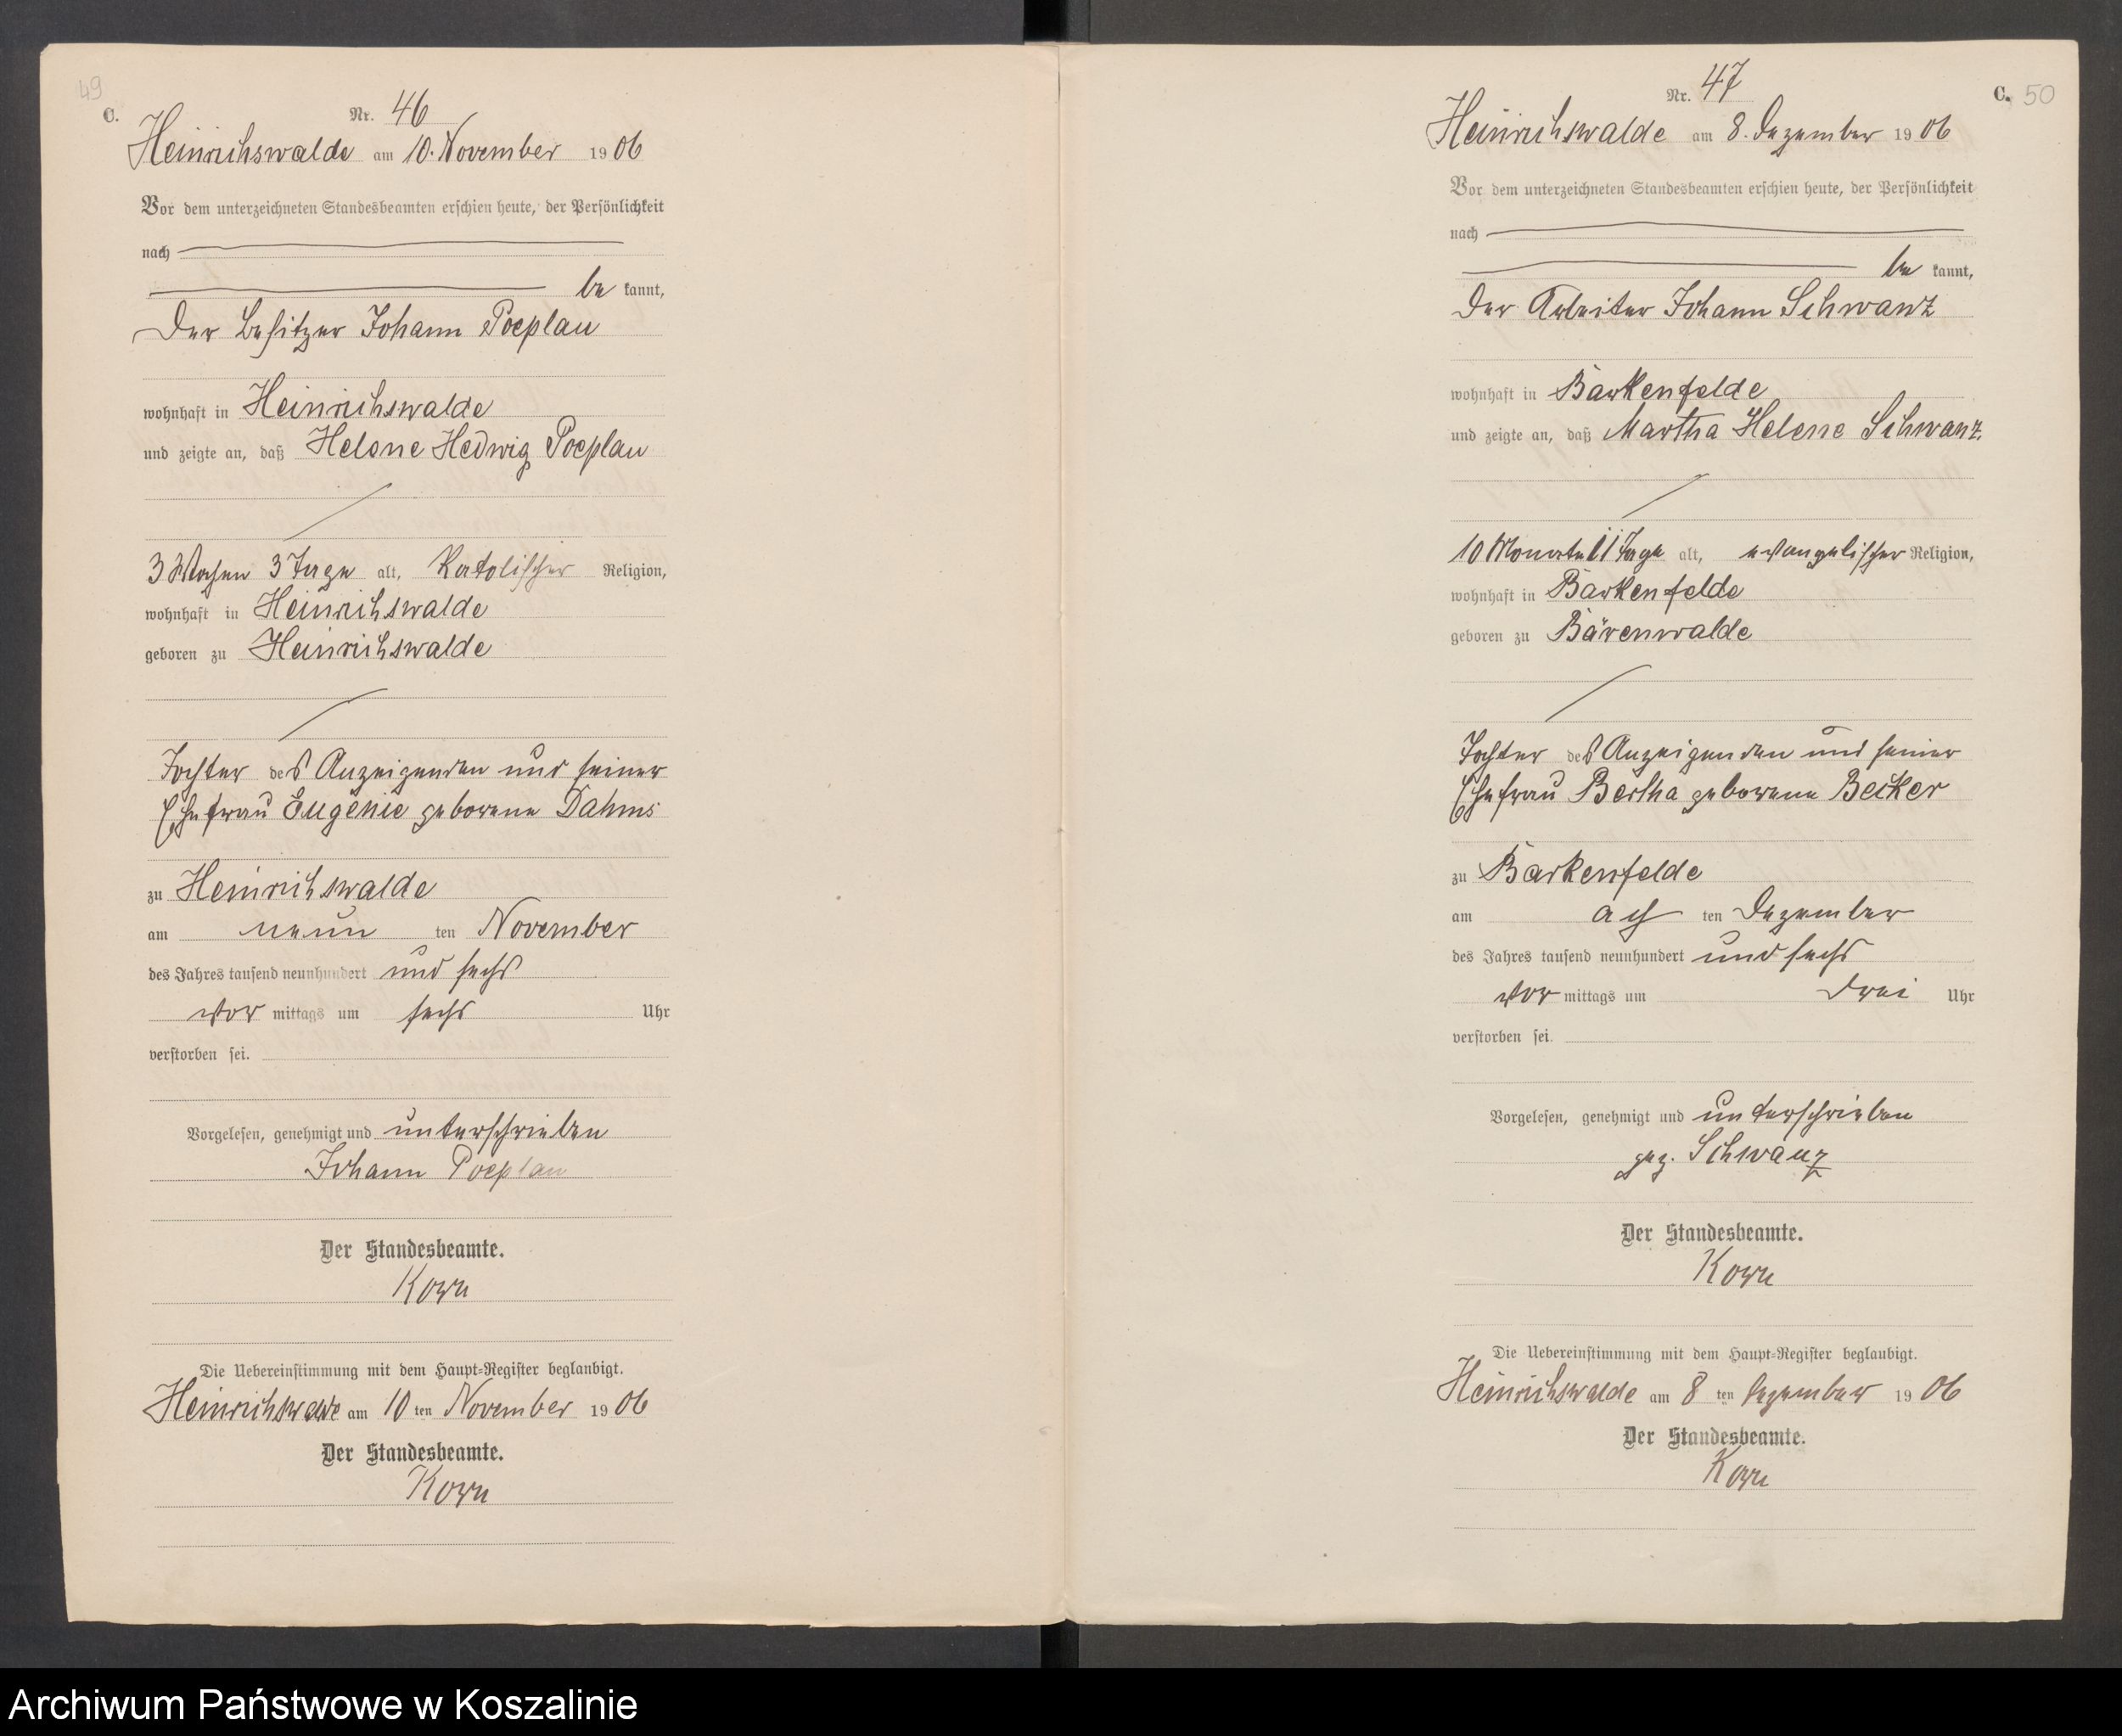 49
C.
Nr. 46
Heinrichswalde am 10. November 1906
Vor dem unterzeichneten Standesbeamten erschien heute, der Persönlichkeit
nach
be kannt,
der Besitzer Johann Poeplau
wohnhaft in Heinrichswalde
und zeigte an, daß Helene Hedwig Poeplau
3 Wochen 3 Tage alt, Katolischer Religion,
wohnhaft in Heinrichswalde
geboren zu Heinrichswalde
Tochter des Anzeigenden und seiner
Ehefrau Eugenie geborene Dahms
zu Heinrichswalde
am neun ten November
des Jahres tausend neunhundert und sechs
vor mittags um sechs Uhr
verstorben sei.
Vorgelesen, genehmigt und unterschrieben
Johann Poeplau
Der Standesbeamte.
Korn
Die Uebereinstimmung mit dem Haupt-Register beglaubigt.
Heinrichswalde am 10 ten November 1906
Der Standesbeamte.
Korn
Nr. 47
C. 50
Heinrichswalde am 8. Dezember 1906
Vor dem unterzeichneten Standesbeamten erschien heute, der Persönlichkeit
nach
be kannt,
der Arbeiter Johann Schwanz
wohnhaft in Bärkenfelde
und zeigte an, daß Martha Helene Schwanz.
10 Monate 11 Tage alt, evangelischer Religion,
wohnhaft in Bärkenfelde
geboren zu Bärenwalde
Tochter des Anzeigenden und seiner
Ehefrau Bertha geborene Becker
zu Barkenfelde
am ach ten Dezember
des Jahres tausend neunhundert und sechs
vor mittags um drei Uhr
verstorben sei.
Vorgelesen, genehmigt und unterschrieben
gez. Schwanz
Der Standesbeamte.
Korn
Die Uebereinstimmung mit dem Haupt-Register beglaubigt.
Heinrichswalde am 8 ten Dezember 1906
Der Standesbeamte.
Korn
Archiwum Państwowe w Koszalinie